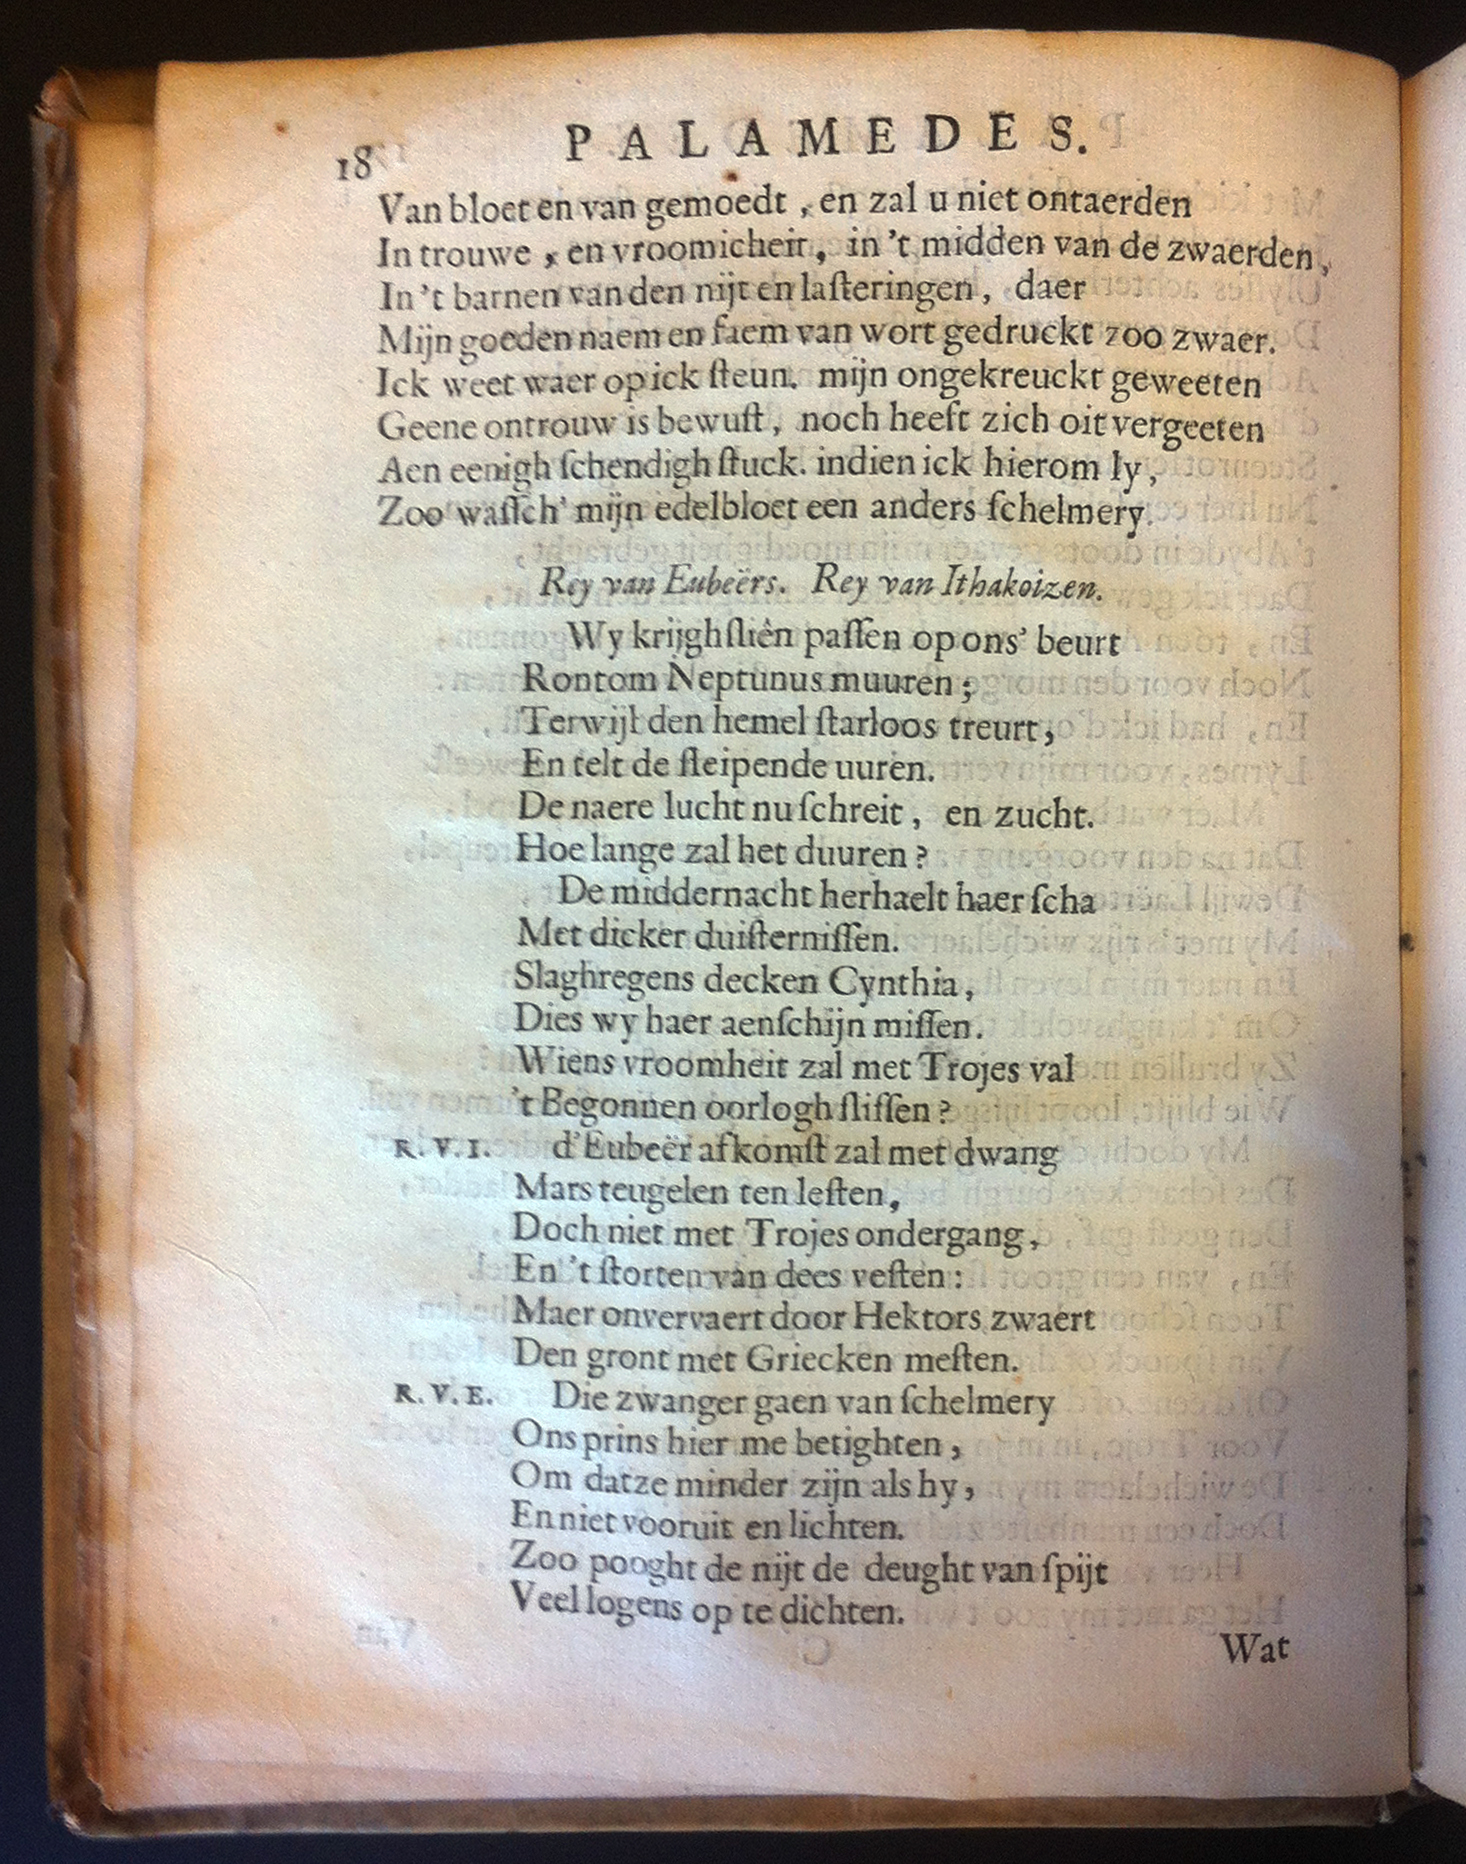 18 PALAMEDES.
Van bloet en van gemoedt, en zal u niet ontaerden
In trouwe, en vroomicheit, in 't midden van de zwaerden,
In 't barnen van den nijt en laſteringen, daer
Mijn goeden naem en faem van wort gedruckt zoo zwaer.
Ick weet waer op ick ſteun. mijn ongekreuckt geweeten
Geene ontrouw is bewuſt, noch heeft zich oit vergeeten
Aen eenigh ſchendigh ſtuck. indien ick hierom ly,
Zoo waſſch' mijn edel bloet een anders ſchelmery.
Rey van Eubeërs. Rey van Ithakoizen.
Wy krijghſliên paſſen op ons' beurt
Rontom Neptunus muuren;
Terwijl den hemel ſtarloos treurt,
En telt de ſleipende uuren.
De naere lucht nu ſchreit, en zucht.
Hoe lange zal het duuren?
De middernacht herhaelt haer ſcha
Met dicker duiſterniſſen.
Slaghregens decken Cynthia,
Dies wy haer aenſchijn miſſen.
Wiens vroomheit zal met Trojes val
't Begonnen oorlogh ſliſſen?
R. V. I. d'Eubeër afkomſt zal met dwang
Mars teugelen ten leſten,
Doch niet met Trojes ondergang,
En 't ſtorten van dees veſten:
Maer onvervaert door Hektors zwaert
Den gront met Griecken meſten.
R. V. E. Die zwanger gaen van ſchelmery
Ons prins hier me betighten,
Om datze minder zijn als hy,
En niet vooruit en lichten.
Zoo pooght de nijt de deught van ſpijt
Veel logens op te dichten.
Wat